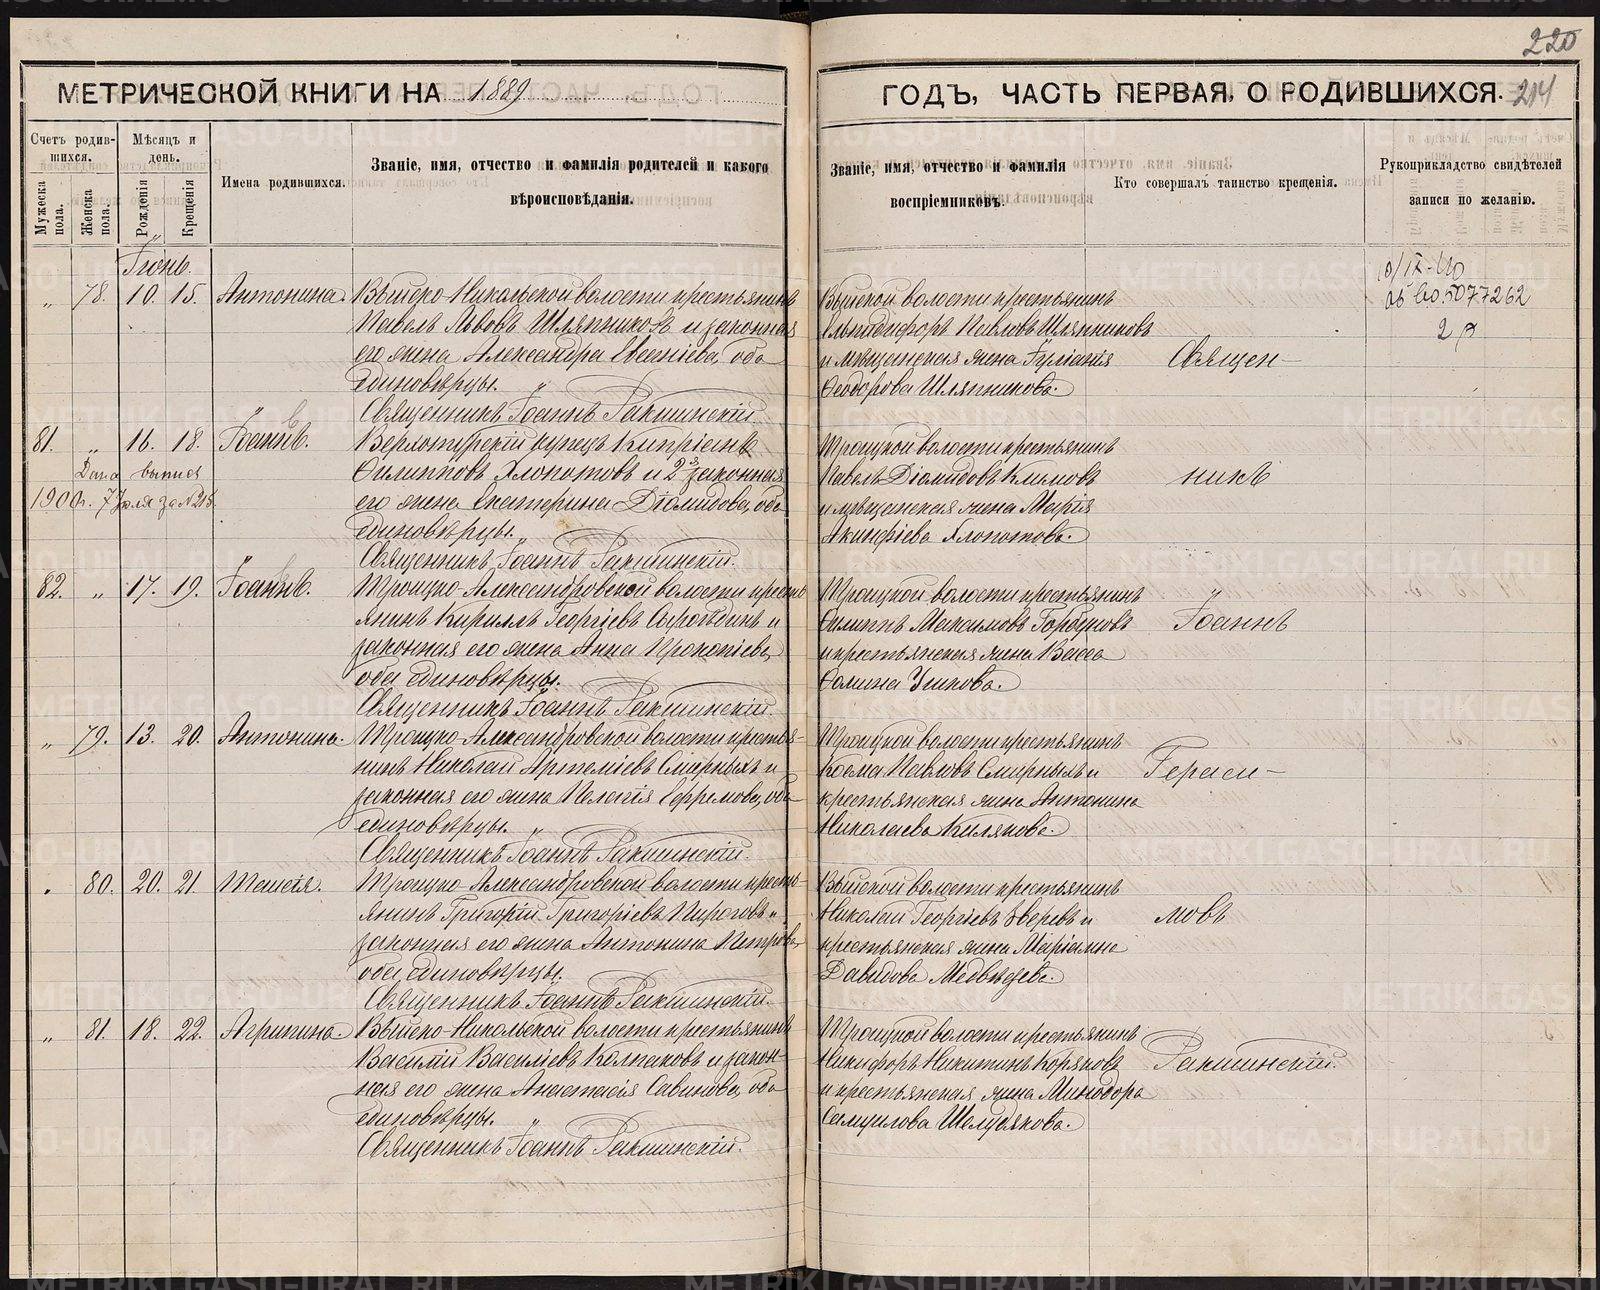 220
МЕТРИЧЕСКОЙ КНИГИ НА 1889
ГОДЪ, ЧАСТЬ ПЕРВАЯ, О РОДИВШИХСЯ. 214
Счетъ родив-
шихся.
Мужеска пола.
Женска пола.
Мѣсяцъ и
день.
Рожденія
Крещенія
Имена родившихся.
Званіе, имя, отчество и фамилія родителей и какого
вѣроисповѣданія.
Званіе, имя, отчество и фамилія
воспріемниковъ.
Кто совершалъ таинство крещенія.
Рукоприкладство свидѣтелей
записи по желанію.
Іюнь.
„ 78. 10. 15. Антонина. Выйско-Никольской волости крестьянинъ
Павелъ Львовъ Шляпниковъ и законная
его жена Александра Евсеніева, оба
единовѣрцы.
Священникъ Іоаннъ Ракшинскій.
Выйской волости крестьянинъ
Елпидифоръ Павловъ Шляпниковъ
и мѣщанская жена Іуліанія
Ѳеодорова Шляпникова.
Священ-
81. „ 16. 18. Іоаннъ. Верхотурскій купецъ Кипріанъ
Филипповъ Хлопотовъ и 2я законная
его жена Екатерина Діомидова, оба
единовѣрцы.
Священникъ Іоаннъ Ракшинскій.
Дана выпись
1900г. 7 Іюля за № 215.
Троицкой волости крестьянинъ
Павелъ Діомидовъ Климовъ
и мѣщанская жена Марія
Акинфіева Хлопотова.
никъ
82. „ 17. 19. Іоаннъ. Троицко-Александровской волости кресть
янинъ Кириллъ Георгіевъ Сыроѣдинъ и
законная его жена Анна Прокопіева,
оба единовѣрцы.
Священникъ Іоаннъ Ракшинскій.
Троицкой волости крестьянинъ
Филиппъ Максимовъ Горбуновъ
и крестьянская жена Васса
Фомина Ушкова.
Іоаннъ
„ 79. 13. 20. Антонина. Троицко-Александровской волости крестья-
нинъ Николай Артеміевъ Смирныхъ и
законная его жена Пелагія Ефремова, оба
единовѣрцы.
Священникъ Іоаннъ Ракшинскій.
Троицкой волости крестьянинъ
Косма Павловъ Смирныхъ и
крестьянская жена Антонина
Николаева Килякова.
Гераси-
„ 80. 20. 21. Таисія. Троицко-Александровской волости кресть-
янинъ Григорій Григоріевъ Пироговъ и
законная его жена Антонина Петрова,
оба единовѣрцы.
Священникъ Іоаннъ Ракшинскій.
Выйской волости крестьянинъ
Николай Георгіевъ Звѣревъ и
крестьянская жена Маріамна
Давидова Медвѣдева.
мовъ
„ 81. 18. 22. Агрипина. Выйско-Никольской волости крестьянинъ
Василій Василіевъ Колпаковъ и закон-
ная его жена Анастасія Савинова, оба
единовѣрцы.
Священникъ Іоаннъ Ракшинскій.
Троицкой волости крестьянинъ
Никифоръ Никитинъ Коряковъ
и крестьянская жена Минодора
Самуилова Шелудякова.
Ракшинскій.